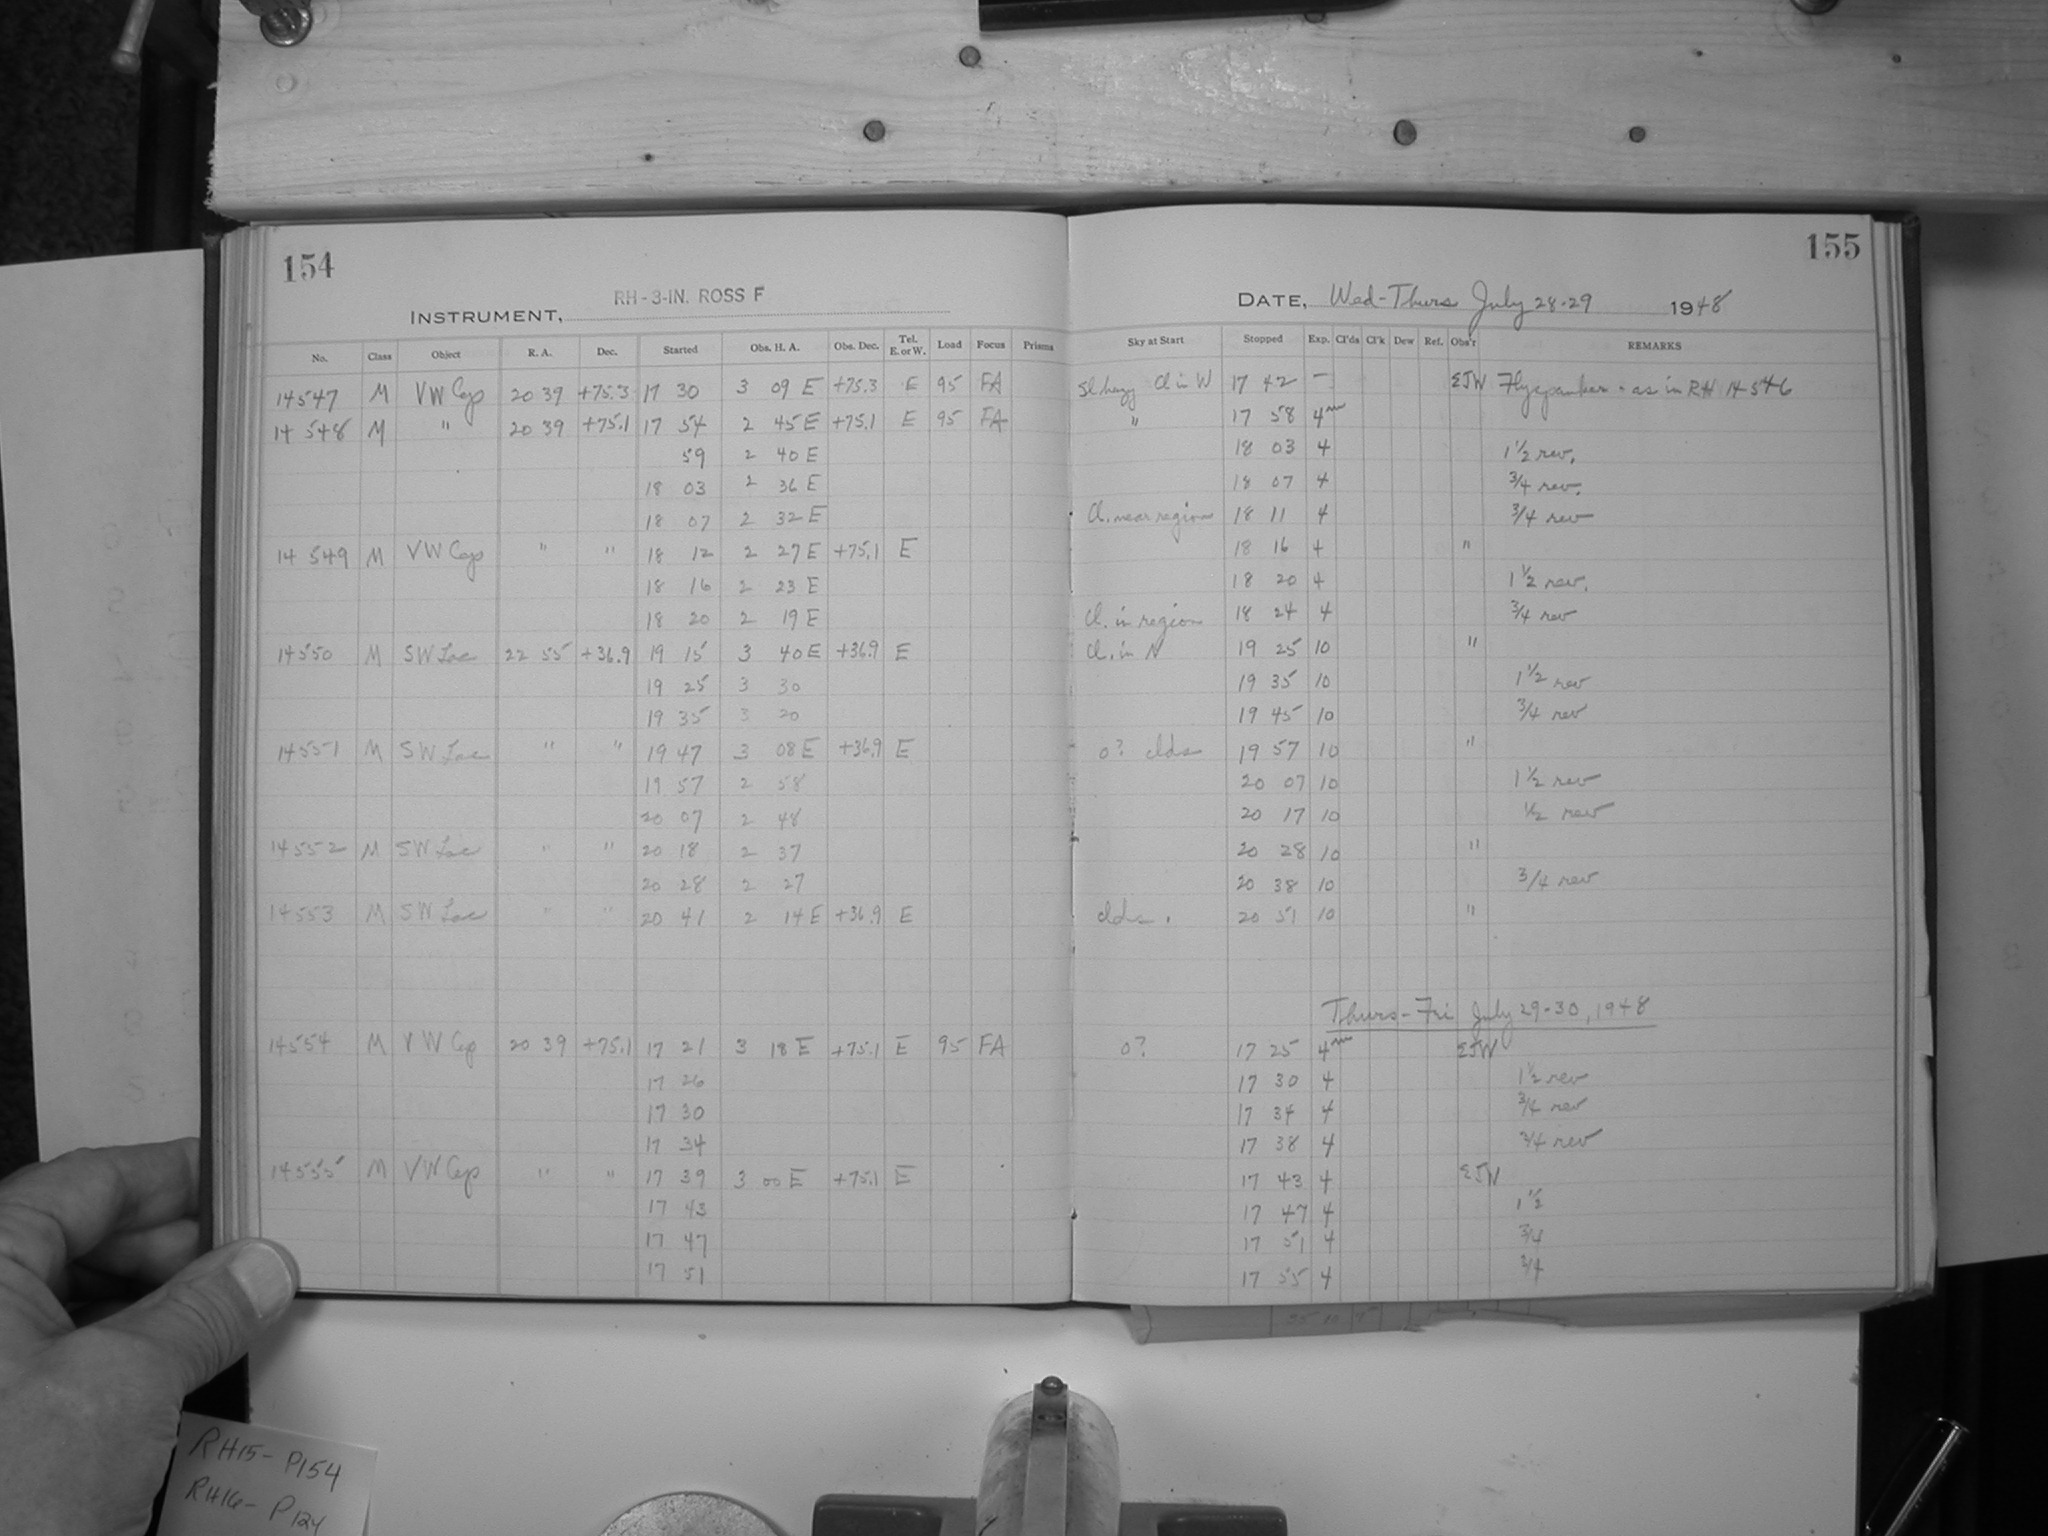 154
155
INSTRUMENT, RH-3-IN. ROSS F
DATE, Wed-Thurs July 28-29 1948
No. Class Object R. A. Dec. Started Obs. H. A. Obs. Dec. Tel. E. or W. Load Focus Prisms Sky at Start Stopped Exp. Cl'ds Cl'k Dew Ref. Obs'r REMARKS
14547 M VW Cep 20 39 +75.3 17 30 3 09 E +75.3 E 95 FA Sl. hazy Cl in W 17 42 — EJW as in RH 14546
14548 M " 20 39 +75.1 17 54 2 45 E +75.1 E 95 FA " 17 58 4m
59 2 40 E 18 03 4 1 1/2 rev.
18 03 2 36 E 18 07 4 3/4 rev.
18 07 2 32 E Cl. near region 18 11 4 3/4 rev
14549 M VW Cep " " 18 12 2 27 E +75.1 E 18 16 4 "
18 16 2 23 E 18 20 4 1 1/2 rev.
18 20 2 19 E Cl. in region 18 24 4 3/4 rev
14550 M SW Lac 22 55 +36.9 19 15 3 40 E +36.9 E Cl. in N 19 25 10 "
19 25 3 30 19 35 10 1 1/2 rev
19 35 3 20 19 45 10 3/4 rev
14551 M SW Lac " " 19 47 3 08 E +36.9 E 0? clds 19 57 10 "
19 57 2 58 20 07 10 1 1/2 rev
20 07 2 48 20 17 10 1/2 rev
14552 M SW Lac " " 20 18 2 37 20 28 10 "
20 28 2 27 20 38 10 3/4 rev
14553 M SW Lac " " 20 41 2 14 E +36.9 E clds. 20 51 10 "
Thurs-Fri July 29-30, 1948
14554 M VW Cep 20 39 +75.1 17 21 3 18 E +75.1 E 95 FA 0? 17 25 4m EJW
17 26 17 30 4 1 1/2 rev
17 30 17 34 4 3/4 rev
17 34 17 38 4 3/4 rev
14555 M VW Cep " " 17 39 3 00 E +75.1 E 17 43 4 EJW
17 43 17 47 4 1 1/2
17 47 17 51 4 3/4
17 51 17 55 4 3/4
RH15 - P154
RH16 - P124